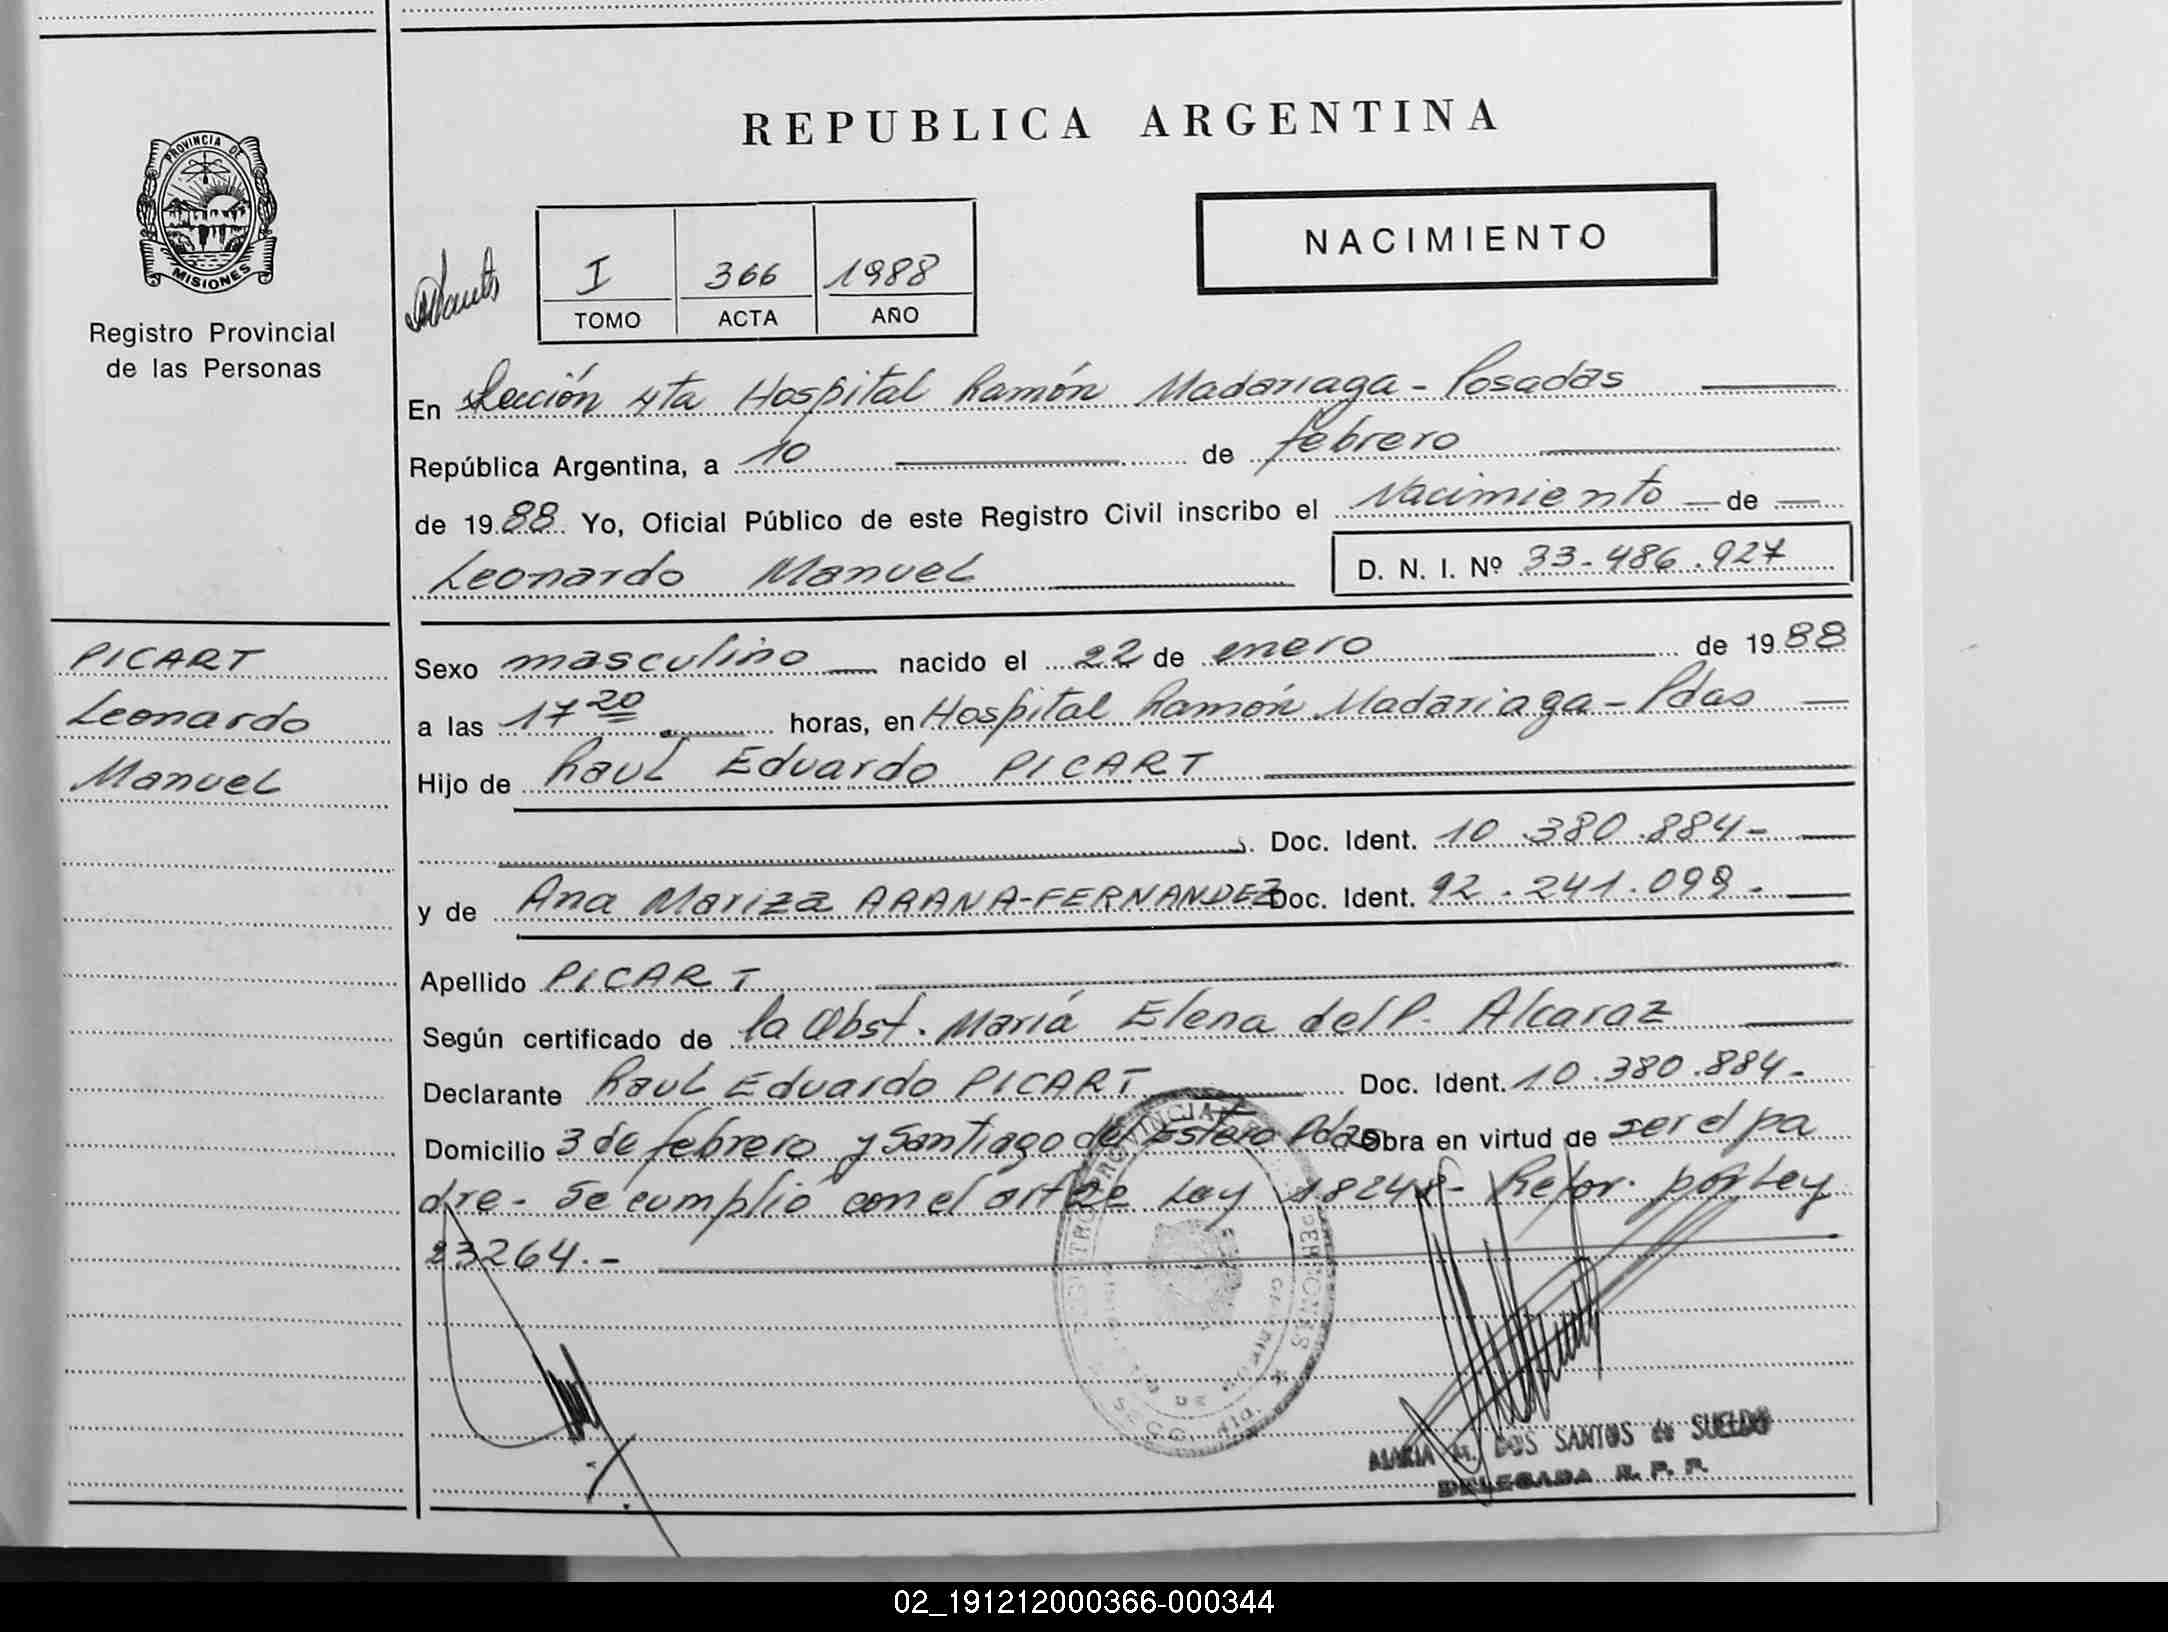 PROVINCIA DE
MISIONES
Registro Provincial
de las Personas
PICART
Leonardo
Manuel
REPUBLICA ARGENTINA
NACIMIENTO
I 366 1988
TOMO ACTA AÑO
En Sección 4ta Hospital Ramón Madariaga - Posadas
República Argentina, a 10 de febrero
de 1988 Yo, Oficial Público de este Registro Civil inscribo el Nacimiento de
Leonardo Manuel D. N. I. Nº 33-486.927
Sexo masculino nacido el 22 de enero de 1988
a las 17 20 horas, en Hospital Ramón Madariaga - Pdas
Hijo de Raul Eduardo PICART
Doc. Ident. 10.380.884-
y de Ana Mariza ARANA-FERNANDEZ Doc. Ident. 92.241.099-
Apellido PICART
Según certificado de la Obst. María Elena del P. Alcaraz
Declarante Raul Eduardo PICART Doc. Ident. 10.380.884-
Domicilio 3 de febrero y Santiago del Estero Pdas Obra en virtud de ser el pa
dre - Se cumplio con el art 2e Ley 18248- Refor. por Ley
23264.-
MARIA M. DOS SANTOS de SUELDO
DELEGADA R. P. P.
02_191212000366-000344